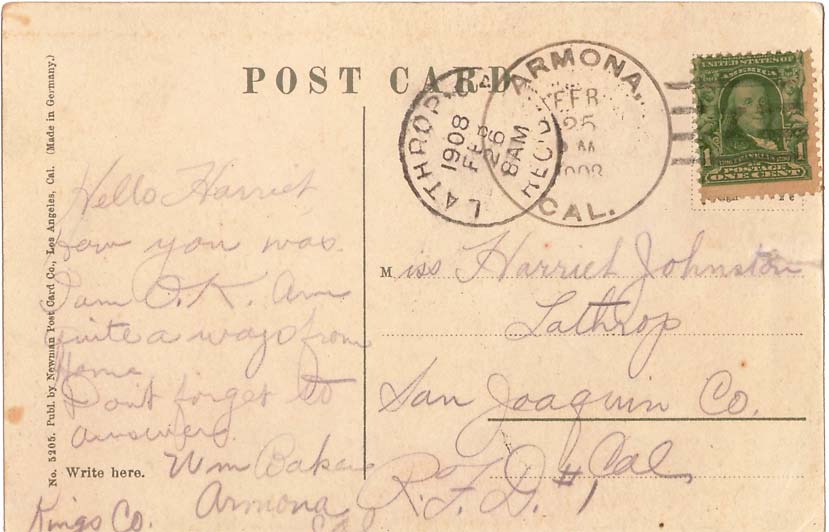 POST CARD
ARMONA,
FEB
25
M
1908
CAL.
LATHROP, CAL
1908
FEB
26
8AM
REC'D
UNITED STATES OF
AMERICA
1
1
FRANKLIN
POSTAGE
ONE CENT
No. 5205. Publ. by Newman Post Card Co., Los Angeles, Cal. (Made in Germany.)
Hello Harriet
how you was.
I am O.K. Am
quite a ways from
Home
Dont forget to
answer
Wm Baker
Armona
Kings Co.
Cal
Write here.
Miss Harriet Johnston
Lathrop
San Joaquin Co.
Cal
R.F.D. #1